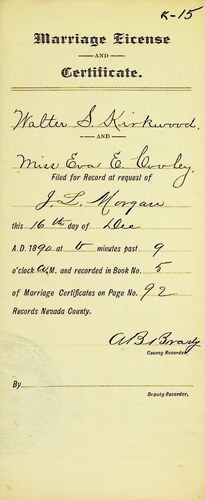 K-15
Marriage License
AND
Certificate.
Walter S. Kirkwood.
AND
Miss Eva E. Cooley.
Filed for Record at request of
J. L. Morgan
this 16th day of Dec
A.D. 1890 at 5 minutes past 9
o'clock A.M. and recorded in Book No. 5
of Marriage Certificates on Page No. 92
Records Nevada County.
A B Brady
County Recorder.
By
Deputy Recorder.